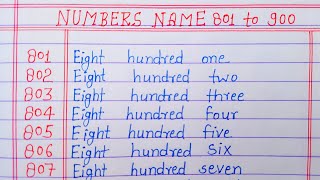 NUMBERS NAME 801 to 900
801 Eight hundred one
802 Eight hundred two
803 Eight hundred three
804 Eight hundred four
805 Eight hundred five
806 Eight hundred six
807 Eight hundred seven